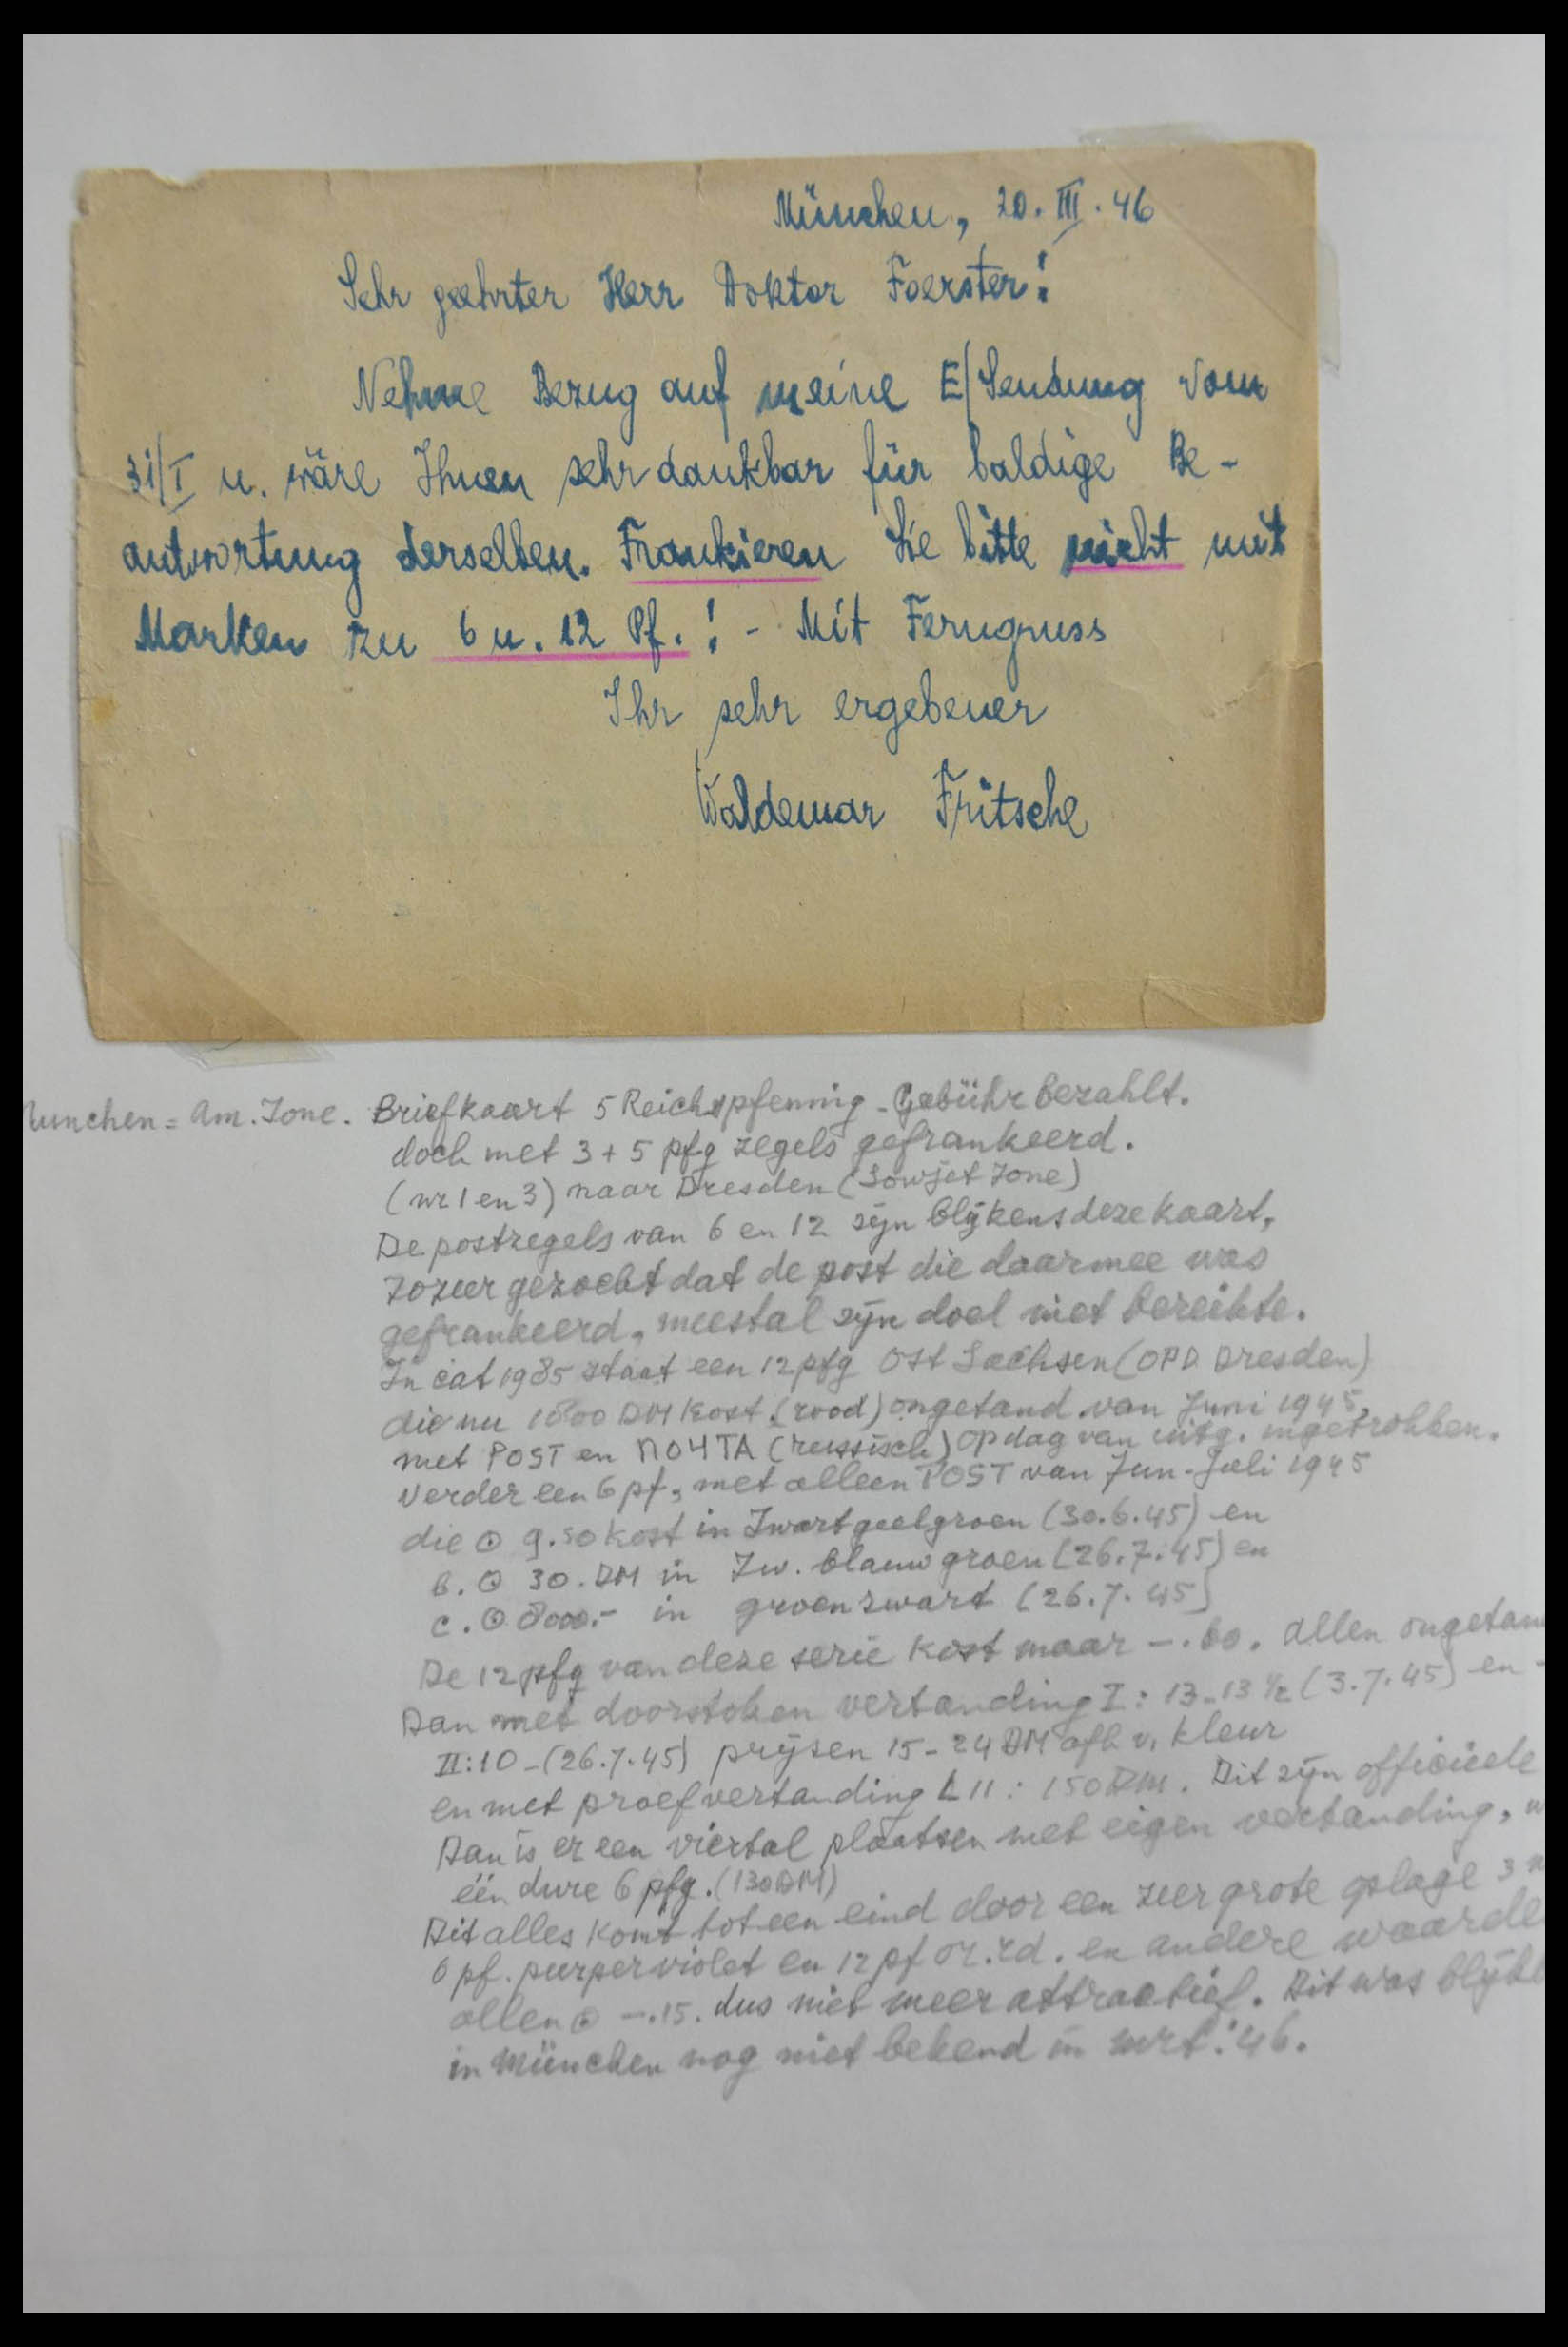 München, 20. III. 46
Sehr geehrter Herr Doktor Foerster!
Nehme Bezug auf meine E/Sendung vom
31/I u. wäre Ihnen sehr dankbar für baldige Be-
antwortung derselben. Frankieren Sie bitte nicht mit
Marken zu 6 u. 12 Pf.! - Mit Ferngruss
Ihr sehr ergebener
Waldemar Fritsche
Munchen = Am. Zone. Briefkaart 5 Reichspfennig - Gebühr bezahlt.
doch met 3 + 5 pfg zegels gefrankeerd.
(nr 1 en 3) naar Dresden (Sowjet Zone)
De postzegels van 6 en 12 zijn blijkens deze kaart,
zozeer gezocht dat de post die daarmee was
gefrankeerd, meestal zijn doel niet bereikte.
In cat 1985 staat een 12 pfg Ost Sachsen (OPD Dresden)
die nu 1800 DM kost. (rood) ongetand van Juni 1945,
met POST en ПОЧТА (russisch) op dag van uitg. ingetrokken.
Verder een 6 pf, met alleen POST van Jun-Juli 1945
die ⊙ 9.50 kost in Zwartgeelgroen (30.6.45) en
b. ⊙ 30. DM in Zw. blauwgroen (26.7.45) en
c. ⊙ 8000.- in groenzwart (26.7.45)
De 12 pfg van deze serie kost maar -.60. allen ongetan
Dan met doorstoken vertanding I: 13-13½ (3.7.45) en
II: 10 - (26.7.45) prijsen 15 - 24 DM afh v. kleur
en met proefvertanding L 11: 150 DM. Dit zijn officieele
Dan is er een viertal plaatsen met eigen vertanding,
één dure 6 pfg. (130 DM)
Dit alles komt tot een eind door een zeer grote oplage 3
6 pf. purperviolet en 12 pf or.rd. en andere waarde
allen ⊙ -.15. dus niet meer attractief. Dit was blijkb
in München nog niet bekend in mrt. '46.